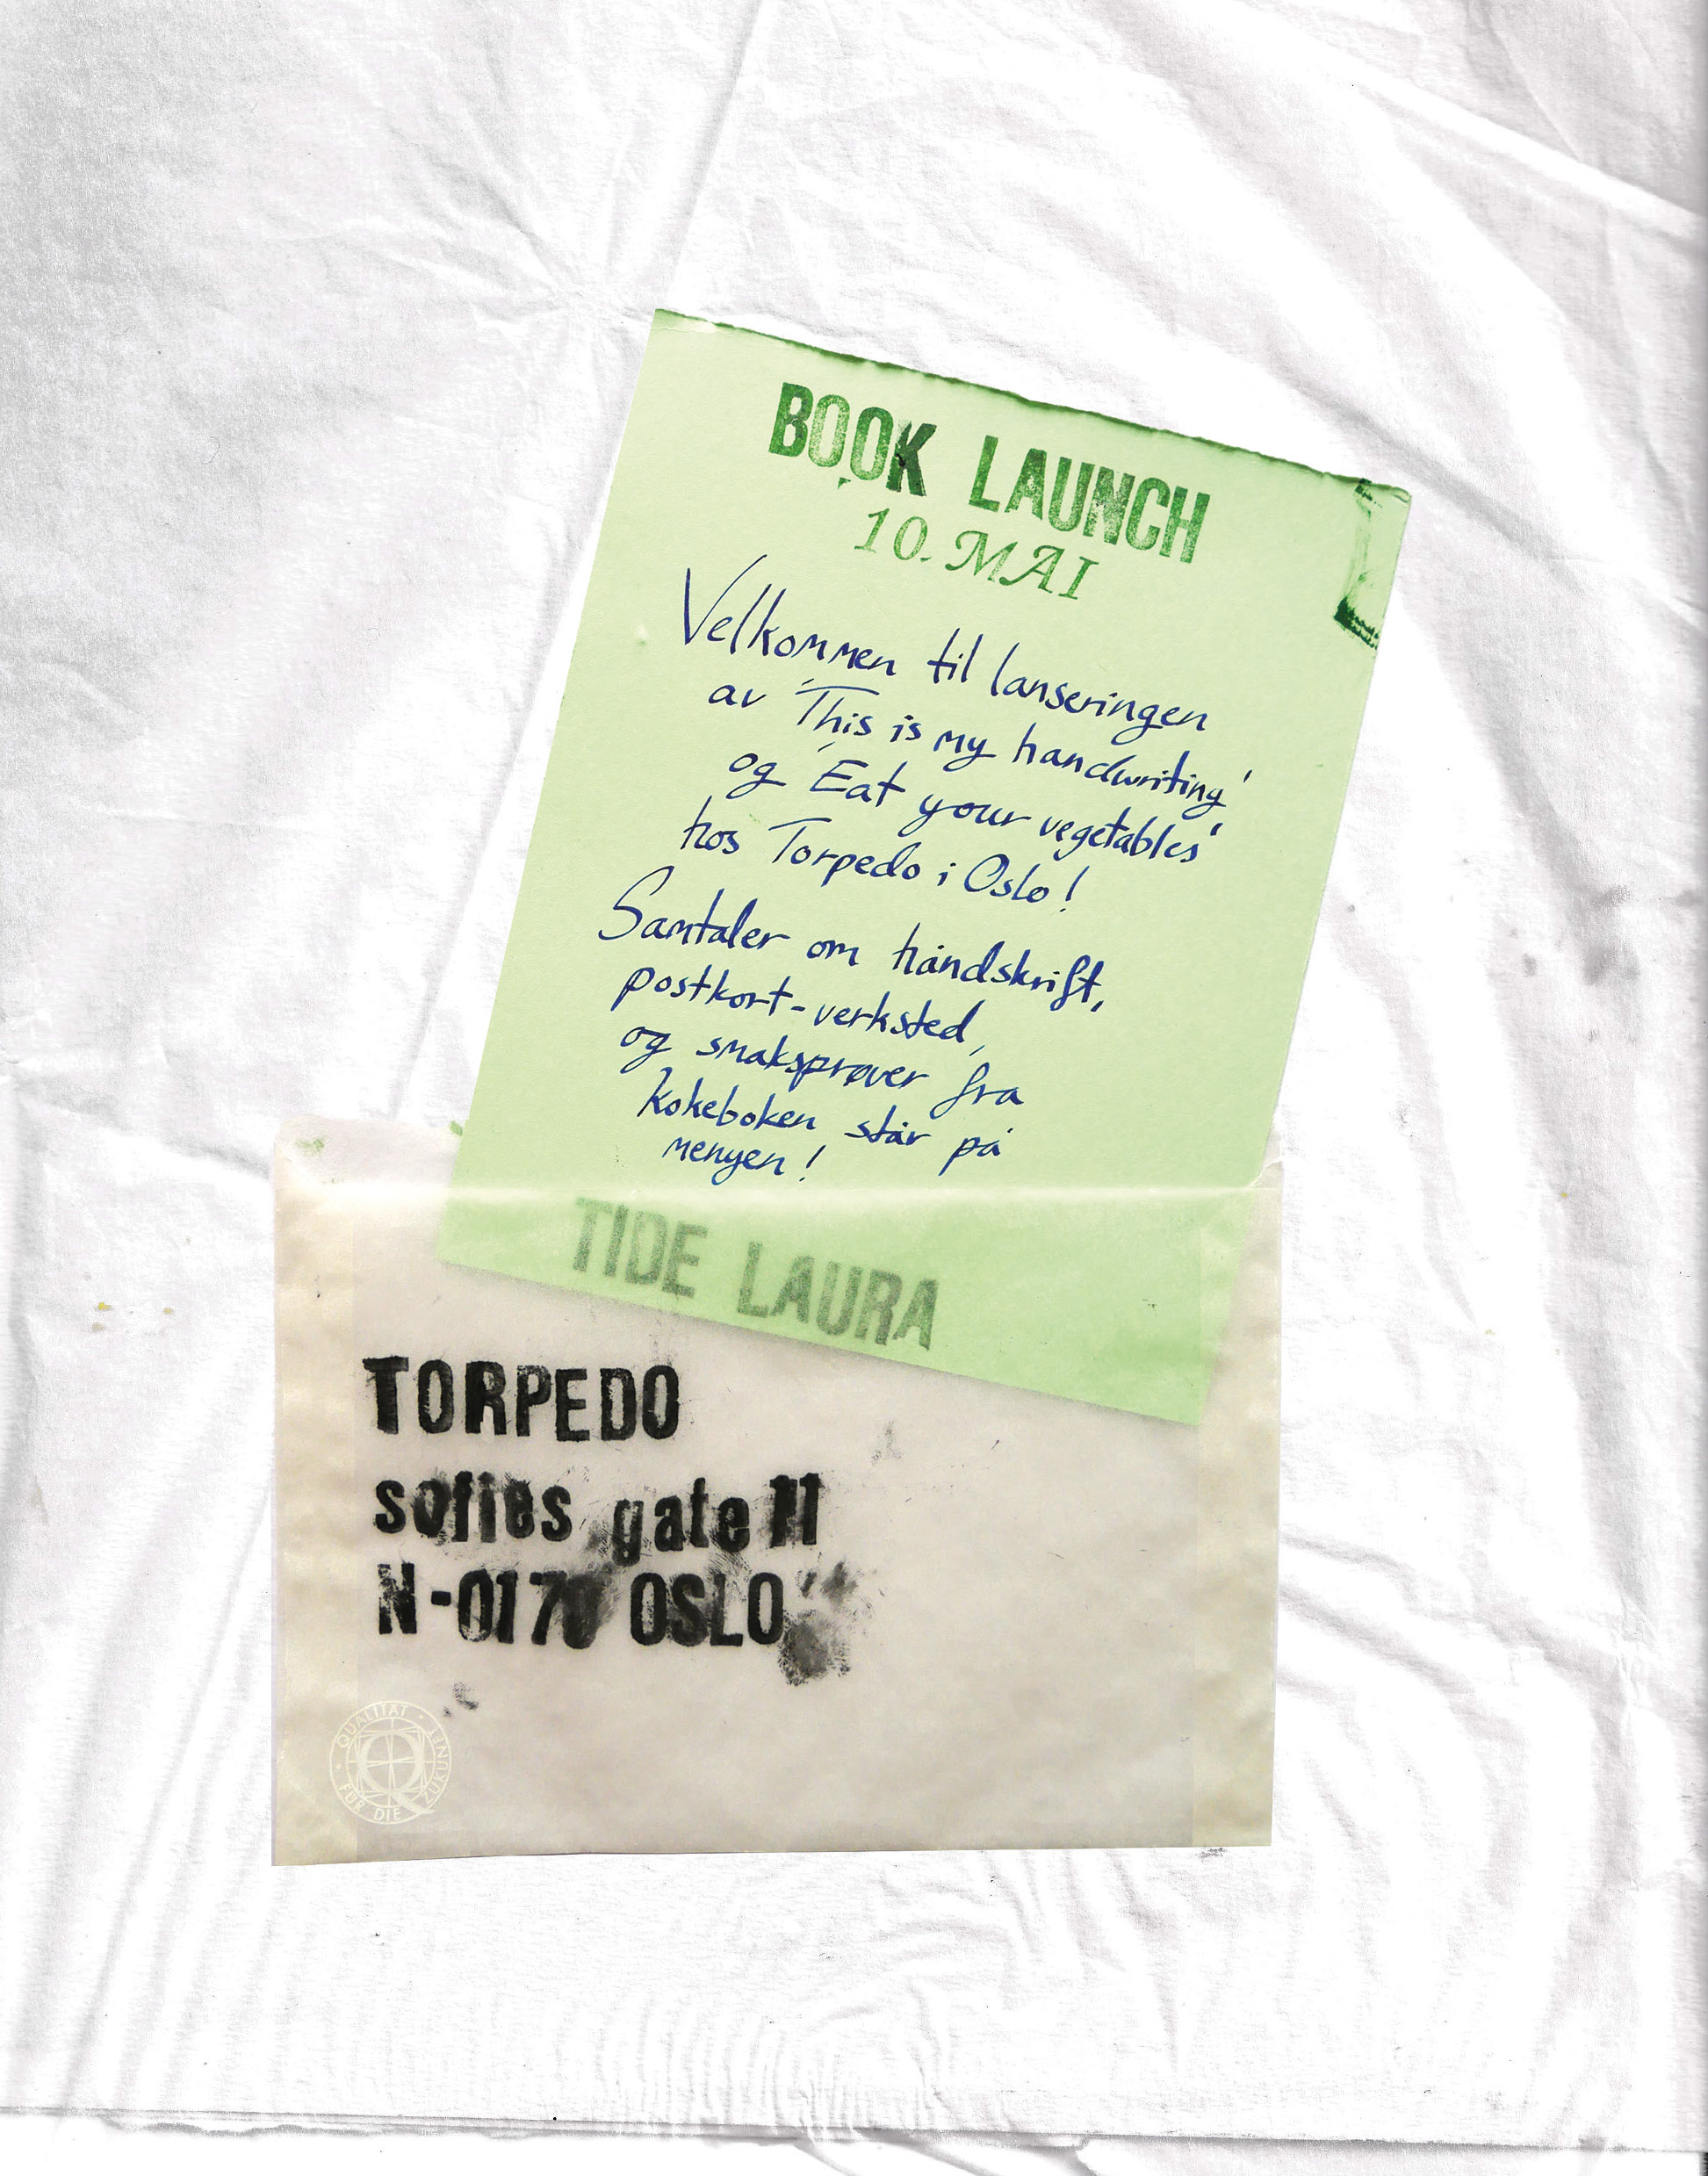 BOOK LAUNCH
10. MAI
Velkommen til lanseringen
av 'This is my handwriting'
og 'Eat your vegetables'
hos Torpedo i Oslo!
Samtaler om håndskrift,
postkort-verksted,
og smaksprøver fra
kokeboken står på
menyen!
TIDE LAURA
TORPEDO
sofies gate 11
N-0170 OSLO
QUALITÄT · FÜR DIE ZUKUNFT ·
Q